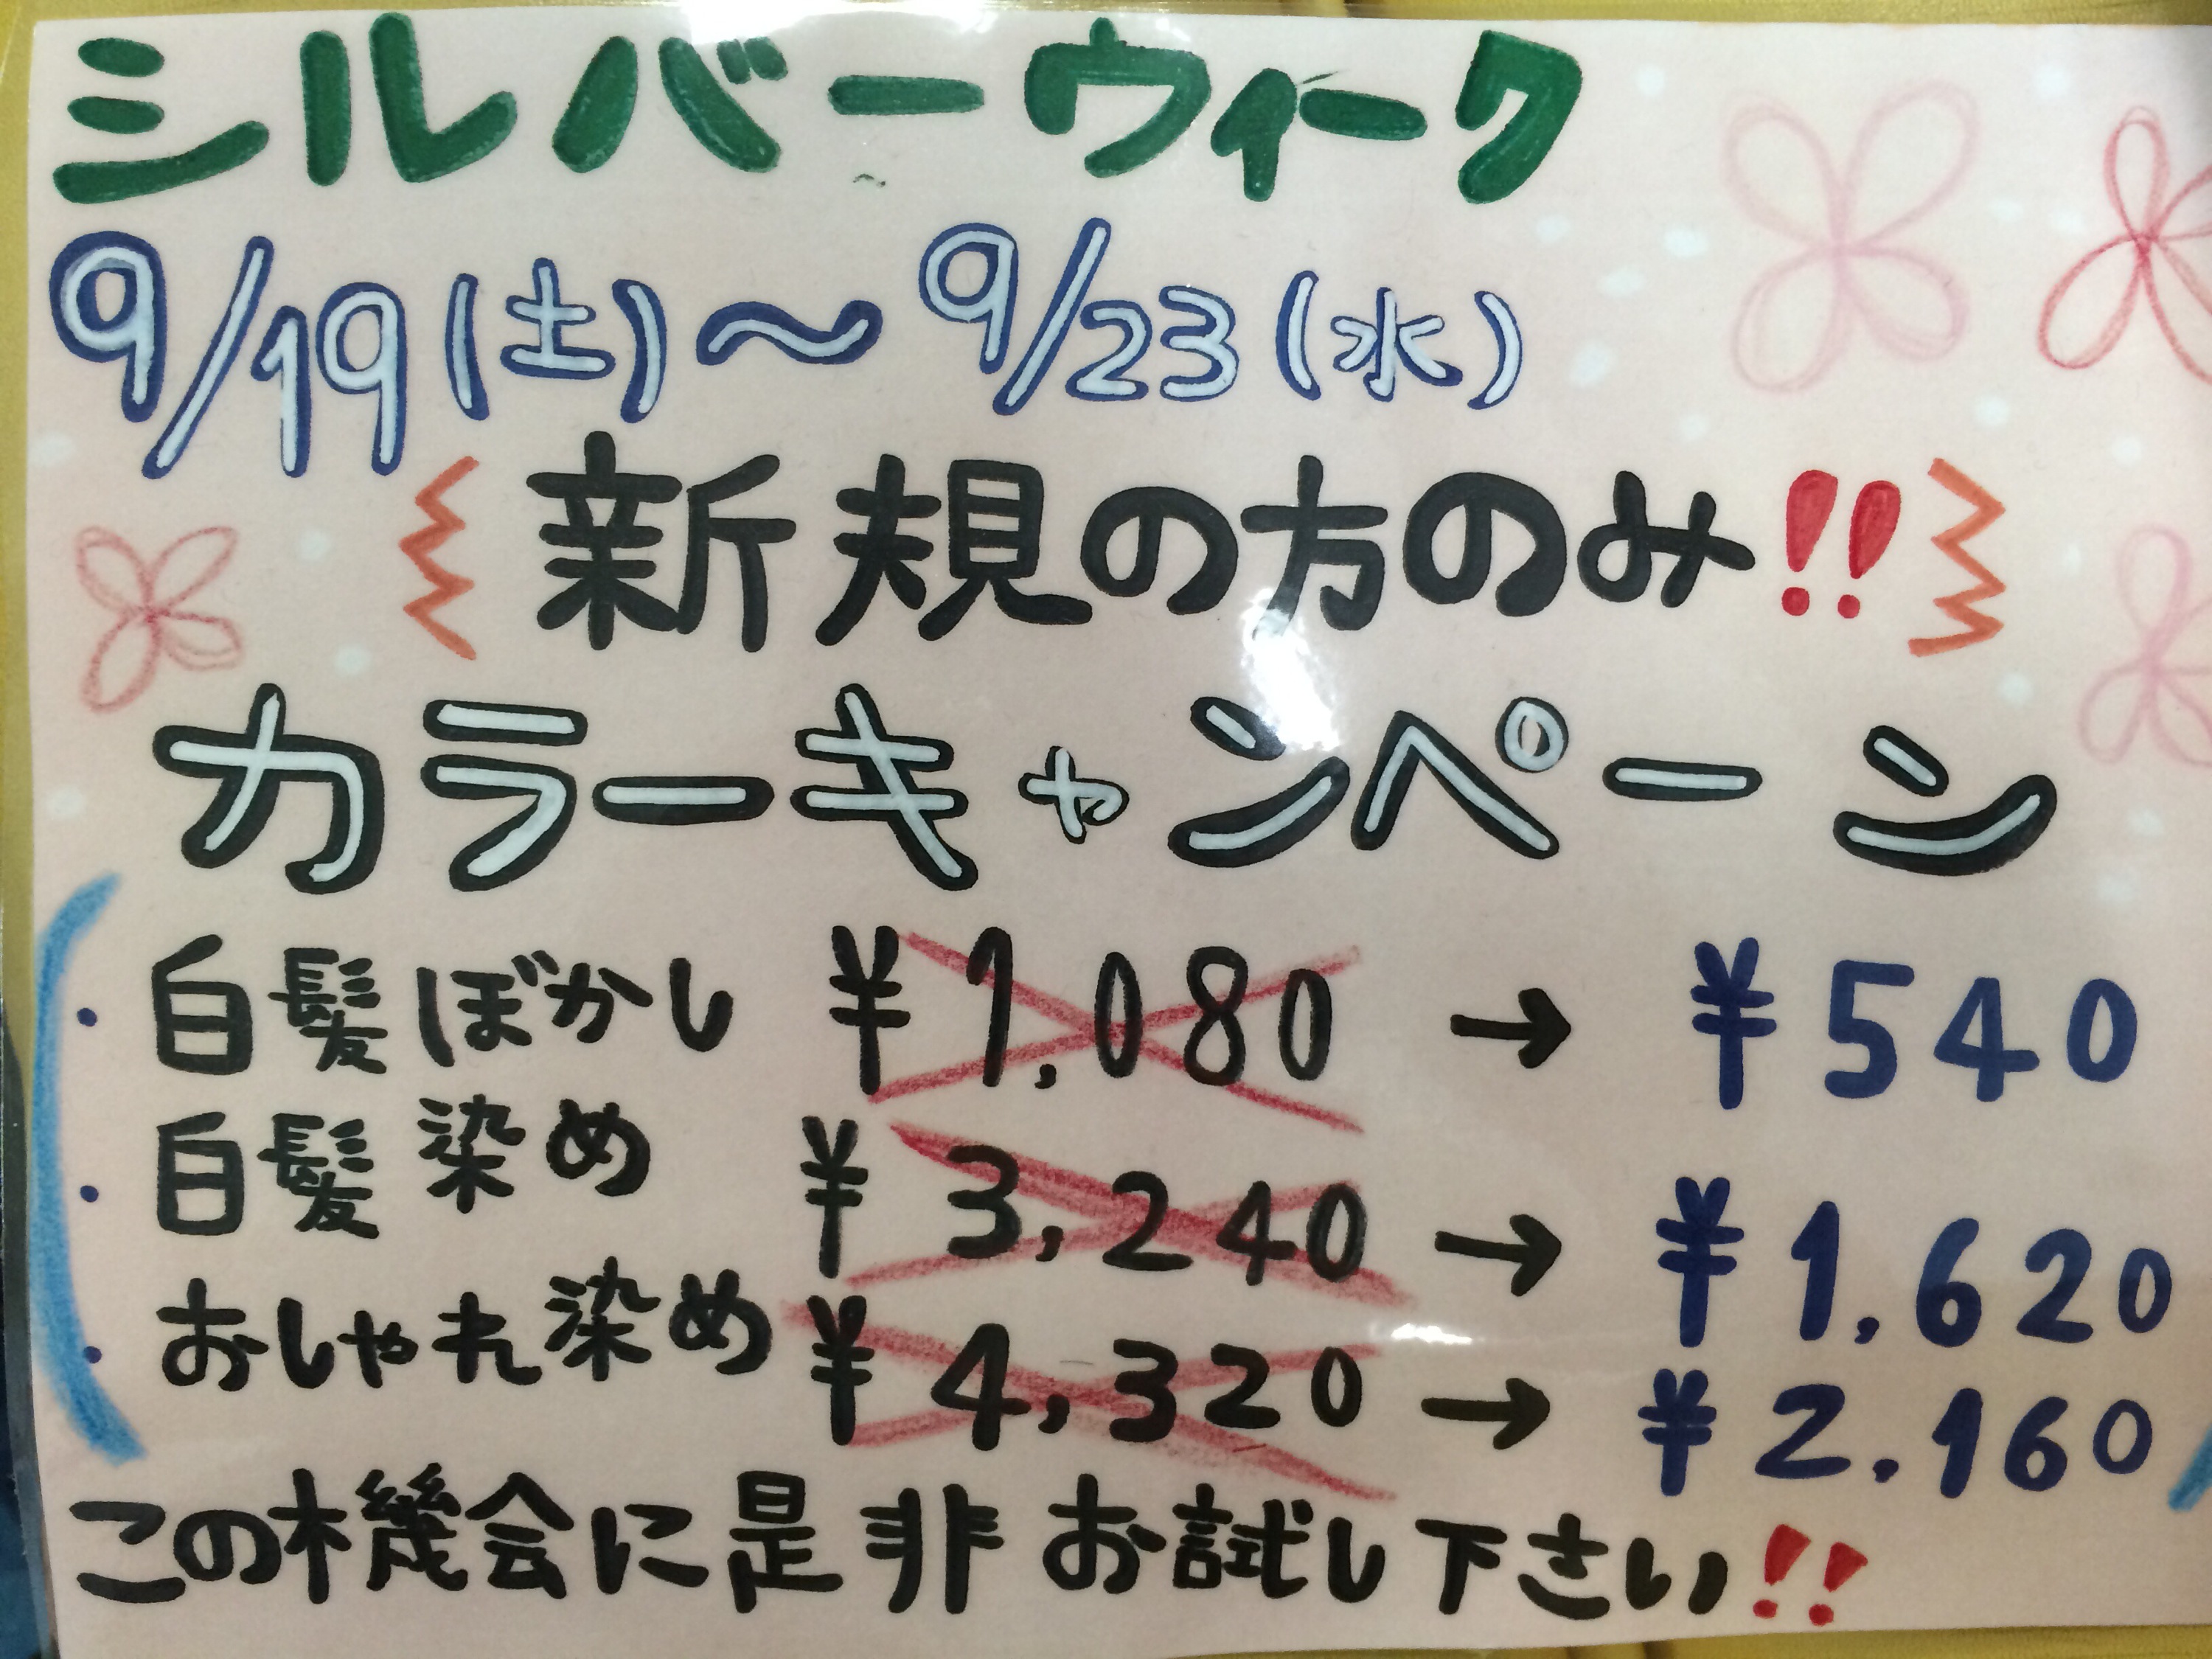 シルバーウィーク
9/19(土)～9/23(水)
新規の方のみ!!
カラーキャンペーン
・白髪ぼかし ¥1,080 → ¥540
・白髪染め ¥3,240 → ¥1,620
・おしゃれ染め ¥4,320 → ¥2.160
この機会に是非お試し下さい!!